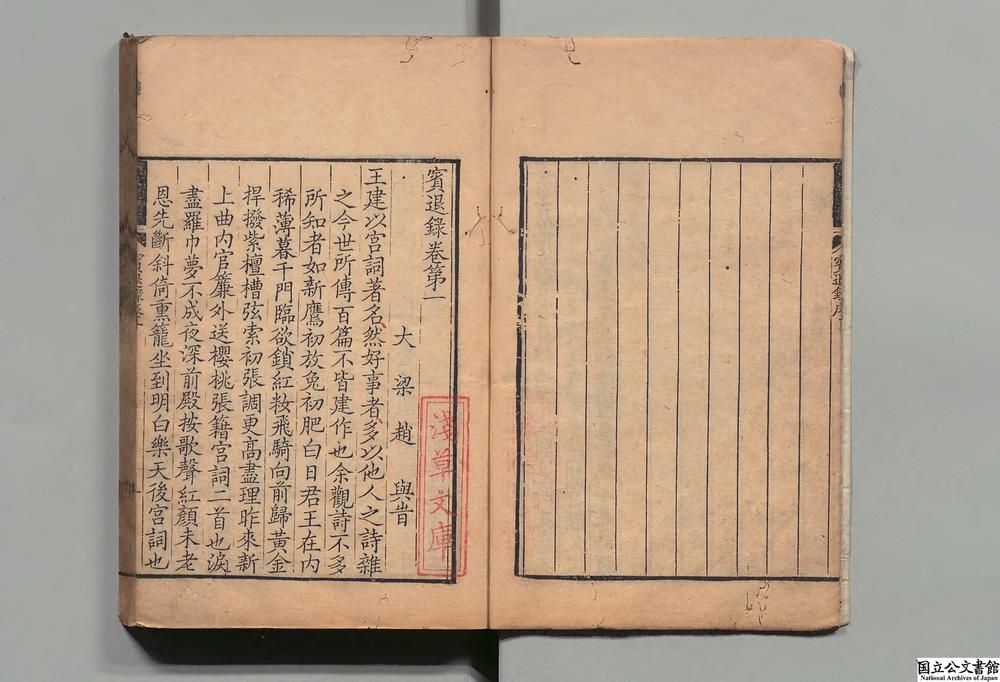 賓退錄序
賓退錄卷第一
大梁趙與旹
淺草文庫
王建以宮詞著名然好事者多以他人之詩雜
之今世所傳百篇不皆建作也余觀詩不多
所知者如新鷹初放兔初肥白日君王在內
稀薄暮千門臨欲鎖紅粧飛騎向前歸黃金
桿撥紫檀槽弦索初張調更高盡理昨來新
上曲內官簾外送櫻桃張籍宮詞二首也淚
盡羅巾夢不成夜深前殿按歌聲紅顏未老
恩先斷斜倚熏籠坐到明白樂天後宮詞也
国立公文書館
National Archives of Japan